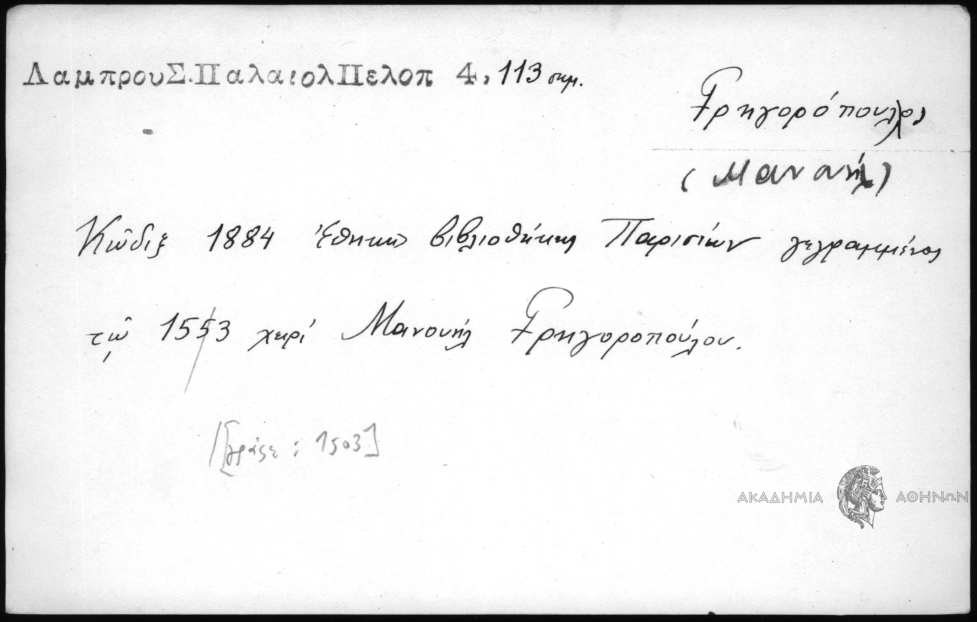 ΛαμπρουΣ.ΠαλαιολΠελοπ 4, 113 σημ.
Γρηγορόπουλος
(Μανουήλ)
Κῶδιξ 1884 Ἐθνικῆς βιβλιοθήκης Παρισίων γεγραμμένος
τῷ 1553 χειρί Μανουήλ Γρηγοροπούλου.
[γράψε : 1503]
ΑΚΑΔΗΜΙΑ ΑΘΗΝΩΝ